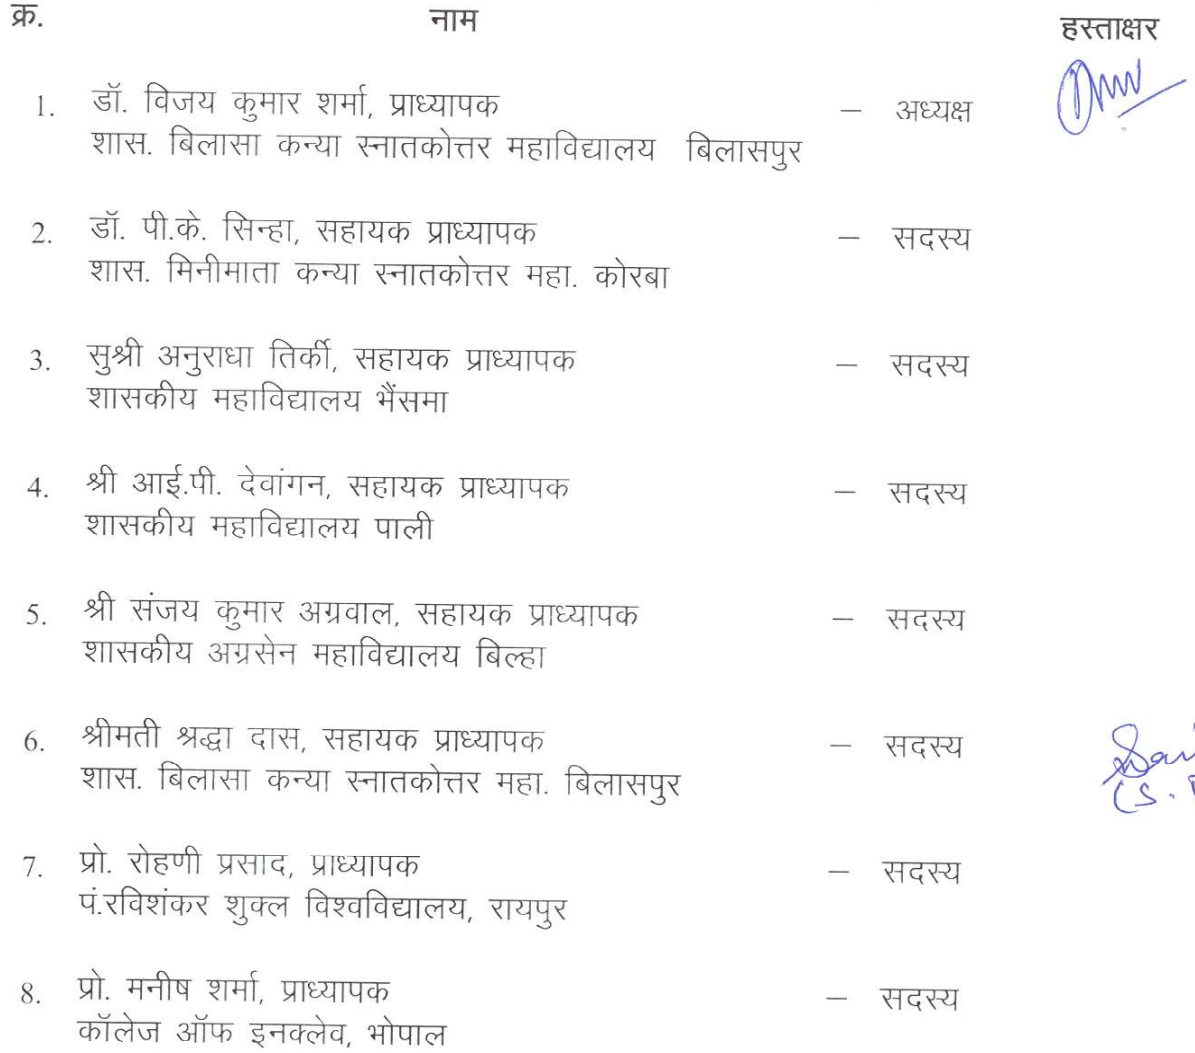 क्र. नाम हस्ताक्षर
1. डॉ. विजय कुमार शर्मा, प्राध्यापक – अध्यक्ष
शास. बिलासा कन्या स्नातकोत्तर महाविद्यालय बिलासपुर
2. डॉ. पी.के. सिन्हा, सहायक प्राध्यापक – सदस्य
शास. मिनीमाता कन्या स्नातकोत्तर महा. कोरबा
3. सुश्री अनुराधा तिर्की, सहायक प्राध्यापक – सदस्य
शासकीय महाविद्यालय भैंसमा
4. श्री आई.पी. देवांगन, सहायक प्राध्यापक – सदस्य
शासकीय महाविद्यालय पाली
5. श्री संजय कुमार अग्रवाल, सहायक प्राध्यापक – सदस्य
शासकीय अग्रसेन महाविद्यालय बिल्हा
6. श्रीमती श्रद्धा दास, सहायक प्राध्यापक – सदस्य
शास. बिलासा कन्या स्नातकोत्तर महा. बिलासपुर (S.
7. प्रो. रोहणी प्रसाद, प्राध्यापक – सदस्य
पं.रविशंकर शुक्ल विश्वविद्यालय, रायपुर
8. प्रो. मनीष शर्मा, प्राध्यापक – सदस्य
कॉलेज ऑफ इनक्लेव, भोपाल